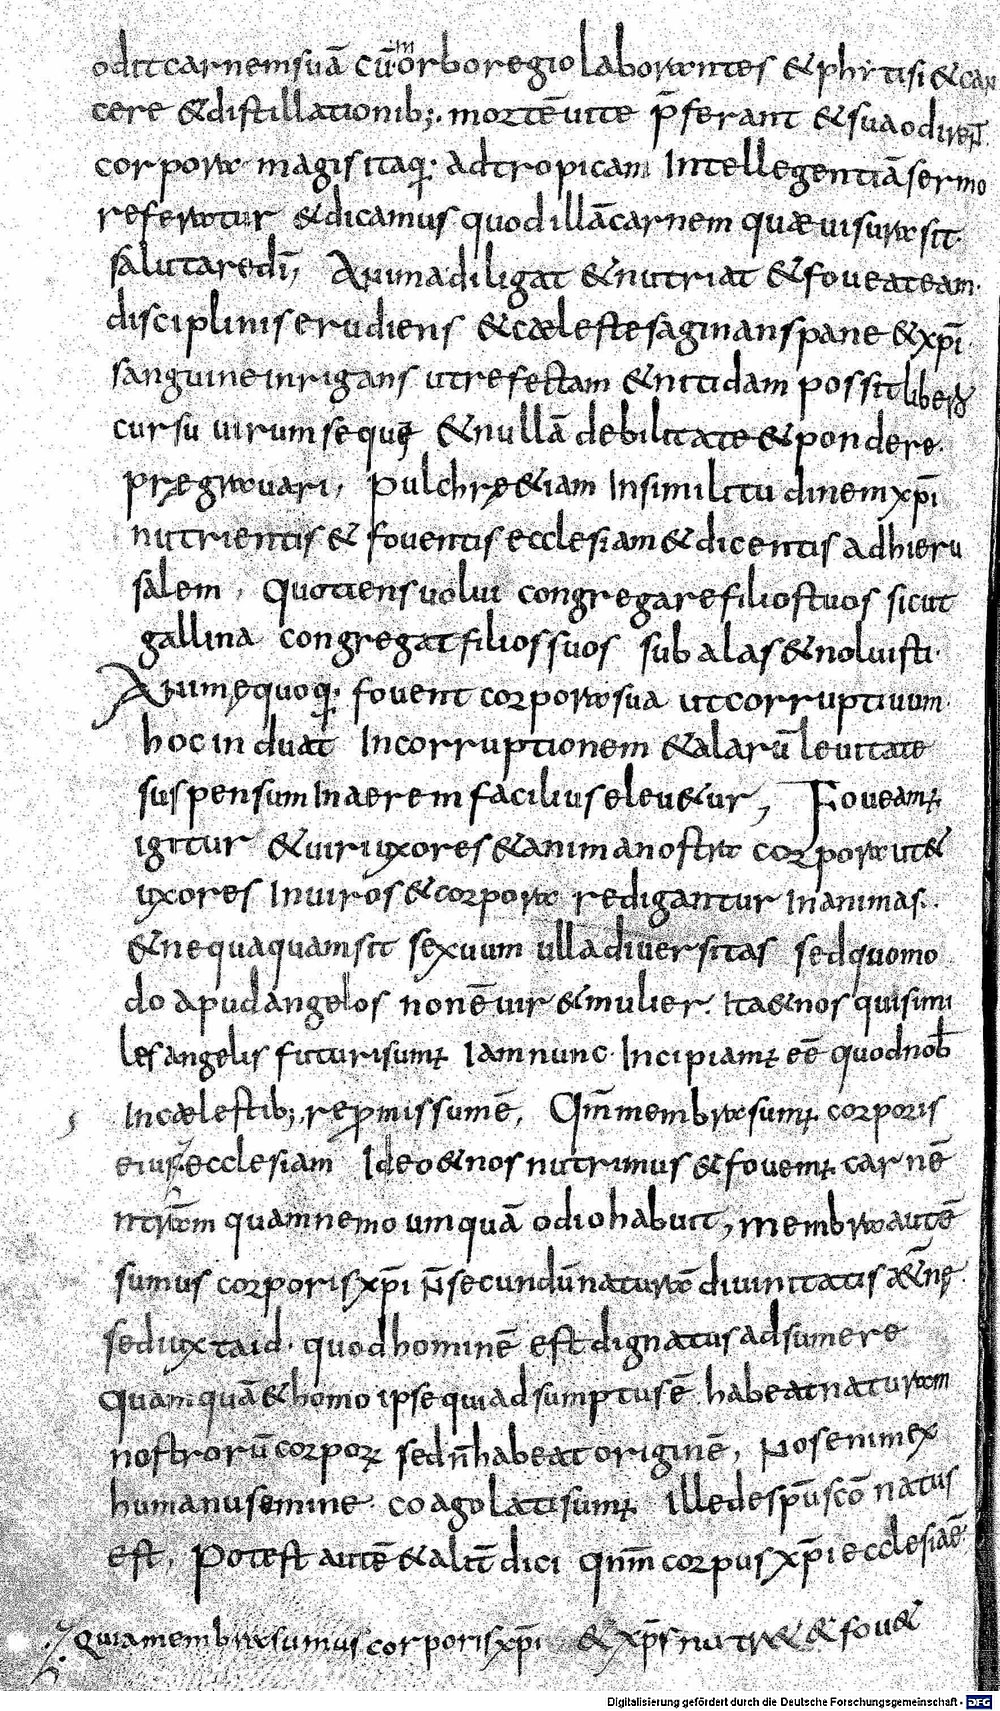 odit carnem suā cū morbo regio laborantes & phitisi & can
cere & distillationib; mortē uite p̄ferant & sua odirent
corpora magis itaq; ad tropicam Intellegentiā sermo
referatur & dicamus quod illā carnem quæ uisura sit
salutare dī, Anima diligat & nutriat & foueat eam
disciplinis erudiens & cæleste saginans pane & xp̄i
sanguine inrigans ut refectam & nitidam possit libero
cursu uirum sequi & nullā debilitate & pondere
prȩgrauari, Pulchrȩ & iam In similitudinem xp̄i
nutrientis & fouentis ecclesiam & dicentis ad hieru
salem, Quotiens uolui congregare filios tuos sicut
gallina congregat filios suos sub alas & noluisti
Animȩ quoq; fouent corpora sua ut corruptiuum
hoc induat Incorruptionem & alarū leuitate
suspensum In aerem facilius eleu&ur, Foueam;
igitur & uiri uxores & anima nostra corpora ut &
uxores In uiros & corpora redigantur In animas.
& nequaquam sit sexuum ulla diuersitas sed quomo
do apud angelos non ē uir & mulier. Ita & nos qui simi
les angelis futuri sum; Iam nunc Incipiam; eē quod nob̄
In cælestib; repmissum ē, Qm̄ membra sum; corporis
eius ecclesiam Ideo & nos nutrimus & fouem; carnē
nrām quam nemo umquā odio habuit, membra autē
sumus corporis xp̄i n̄ secundū naturā diuinitatis &nȩ
sed iuxta id quod hominē est dignatus adsumere
Quamquā & homo ipse qui adsumptus ē habeat naturam
nostrorū corpor; sed n̄ habeat originē, Nos enim ex
humanu semine coagolati sum; ille de sp̄u sc̄o natus
est, Potest autē & alit̄ dici qnm̄ corpus xp̄i ecclesia ē
quia membra sumus corporis xp̄i & xp̄s nutr& & fou&
Digitalisierung gefördert durch die Deutsche Forschungsgemeinschaft - DFG